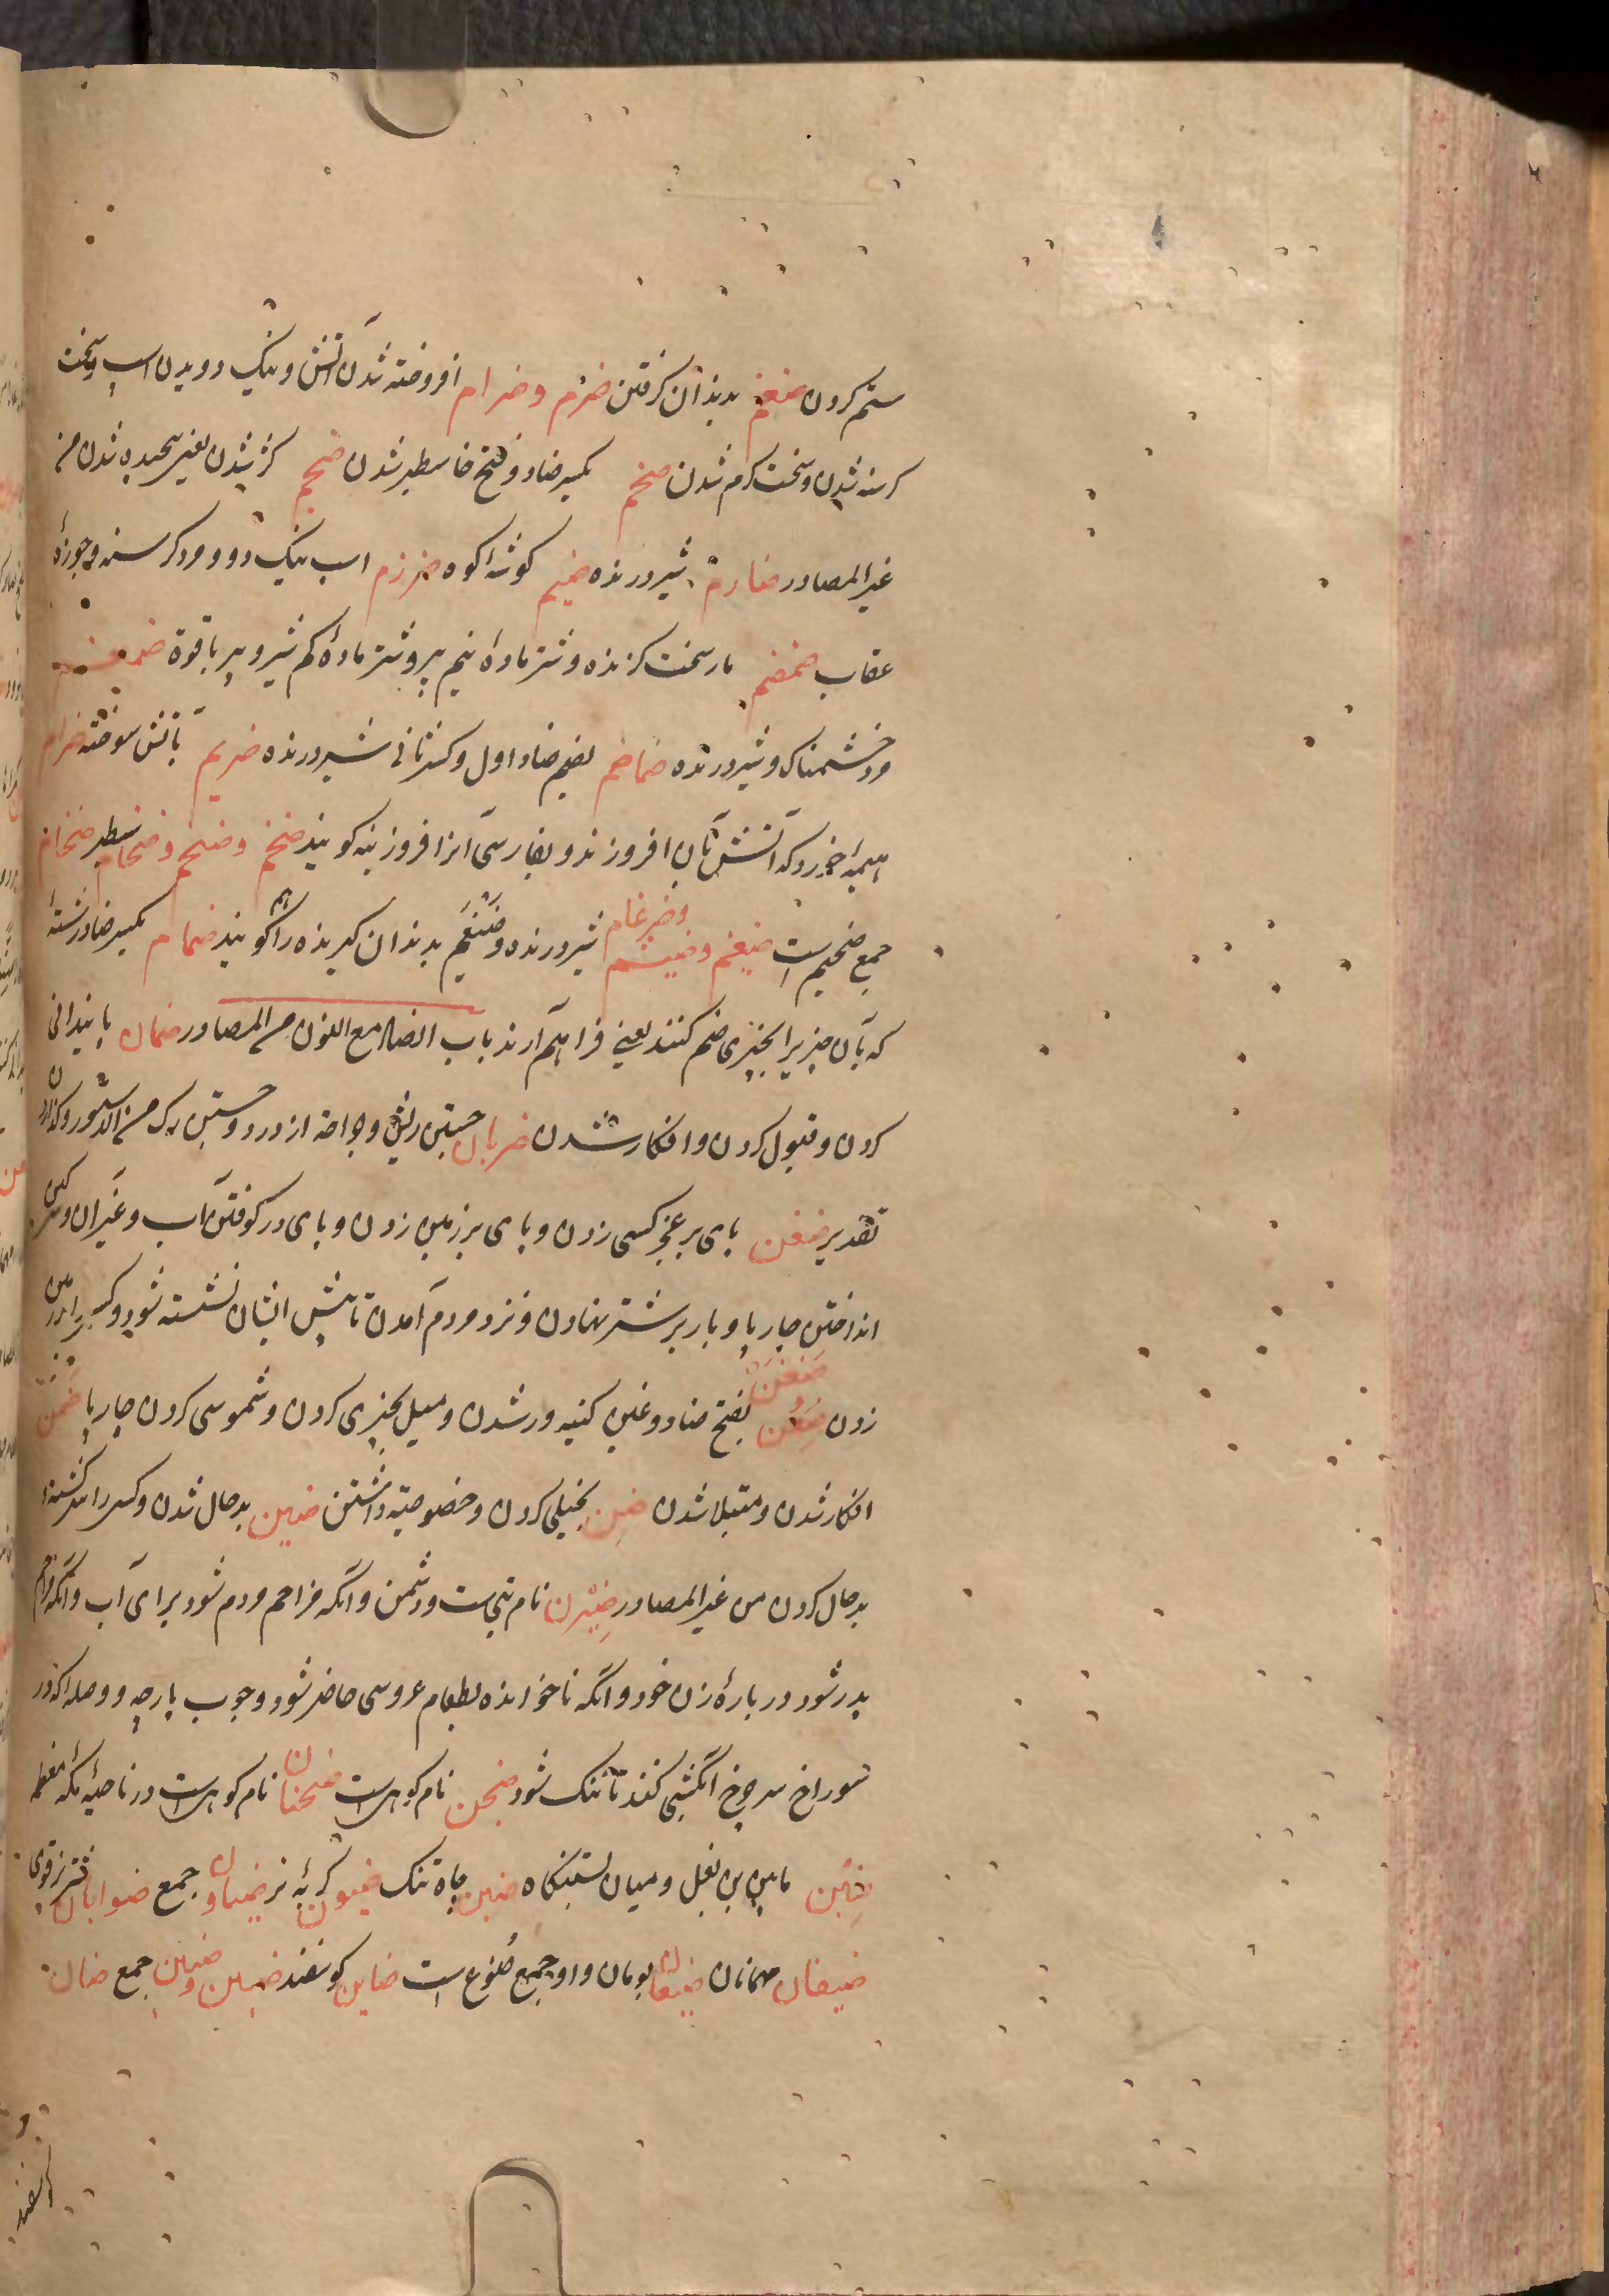 ستم کردن ضغم بدندان کرفتن ضرم وضرام افروخته شدن آتش ونیک دویدن اسپ وسخت
کرسنه شدن وسخت کرم شدن ضخم بکسر ضاد وفتح خا سطبر شدن ضجم کژ شدن یعنی پیچیده شدن من
غیر المصادر ضبارم شیر درنده ضیم کوشه کوه ضرزم اسپ نیک دو ومرد کرسنه وجوزهٔ
عقاب ضمضم مار سخت کزنده وشتر مادهٔ نیم پیر وشتر مادهٔ کم شیر وپیر باقوة
مرد خشمناک وشیر درنده ضماضم بضم ضاد اول وکسر ثانی شیر درنده ضریم باتش سوخته ضرام
هیمهٔ خرد که آتش بآن افروزند وبفارسی آنرا افروزینه کویند ضخم وضخیم وضخام سطبر ضخام
جمع ضخیم است ضیغم وضیثم وضرغام شیر درنده وضیغم بدندان کیرنده را هم کویند ضمام بکسر ضاد رشتهٔ
که بآن چیزیرا بچیزی ضم کنند یعنی فراهم آرند باب الضاد مع النون من المصادر ضمان پایندانی
کردن وقبول کردن وافکار شدن ضربان جستن ریش وجراحة از درد وجستن رک من الدستور
تقدیر ضفن پای بر عجز کسی زدن وپای بر زمین زدن وپای در کوفتن آب وغیر آن
انداختن چارپا وبار بر شتر نهادن ونزد مردم آمدن تا پیش ایشان نشسته شود
زدن ضغن وضغن بفتح ضاد وغین کینه ور شدن ومیل بچیزی کردن وشموسی کردن چارپا ضمن
افکار شدن ومبتلا شدن ضن بخیلی کردن وخصوصیة داشتن ضین بدحال شدن
بدحال کردن من غیر المصادر ضیزن نام بتیست ودشمن وآنکه مزاحم مردم شود برای آب وآنکه مزاحم
پدر شود در بارهٔ زن خود وآنکه ناخوانده بطعام عروسی حاضر شود وچوب پارچه ووصله که در
سوراخ سر چرخ آبکشی کنند تا تنک شود ضجن نام کوهی است ضجنان نام کوهی است در ناحیهٔ مکه معظمه
ضبن مابین بن بغل ومیان تهیکاه ضبن چاه تنک ضیون کربهٔ نر ضیاون جمع ضوابان شتر نر قوی
ضیفان مهمانان ضیعان بومان واو جمع ضوع است ضاین کوسفند ضین وضیین جمع ضان